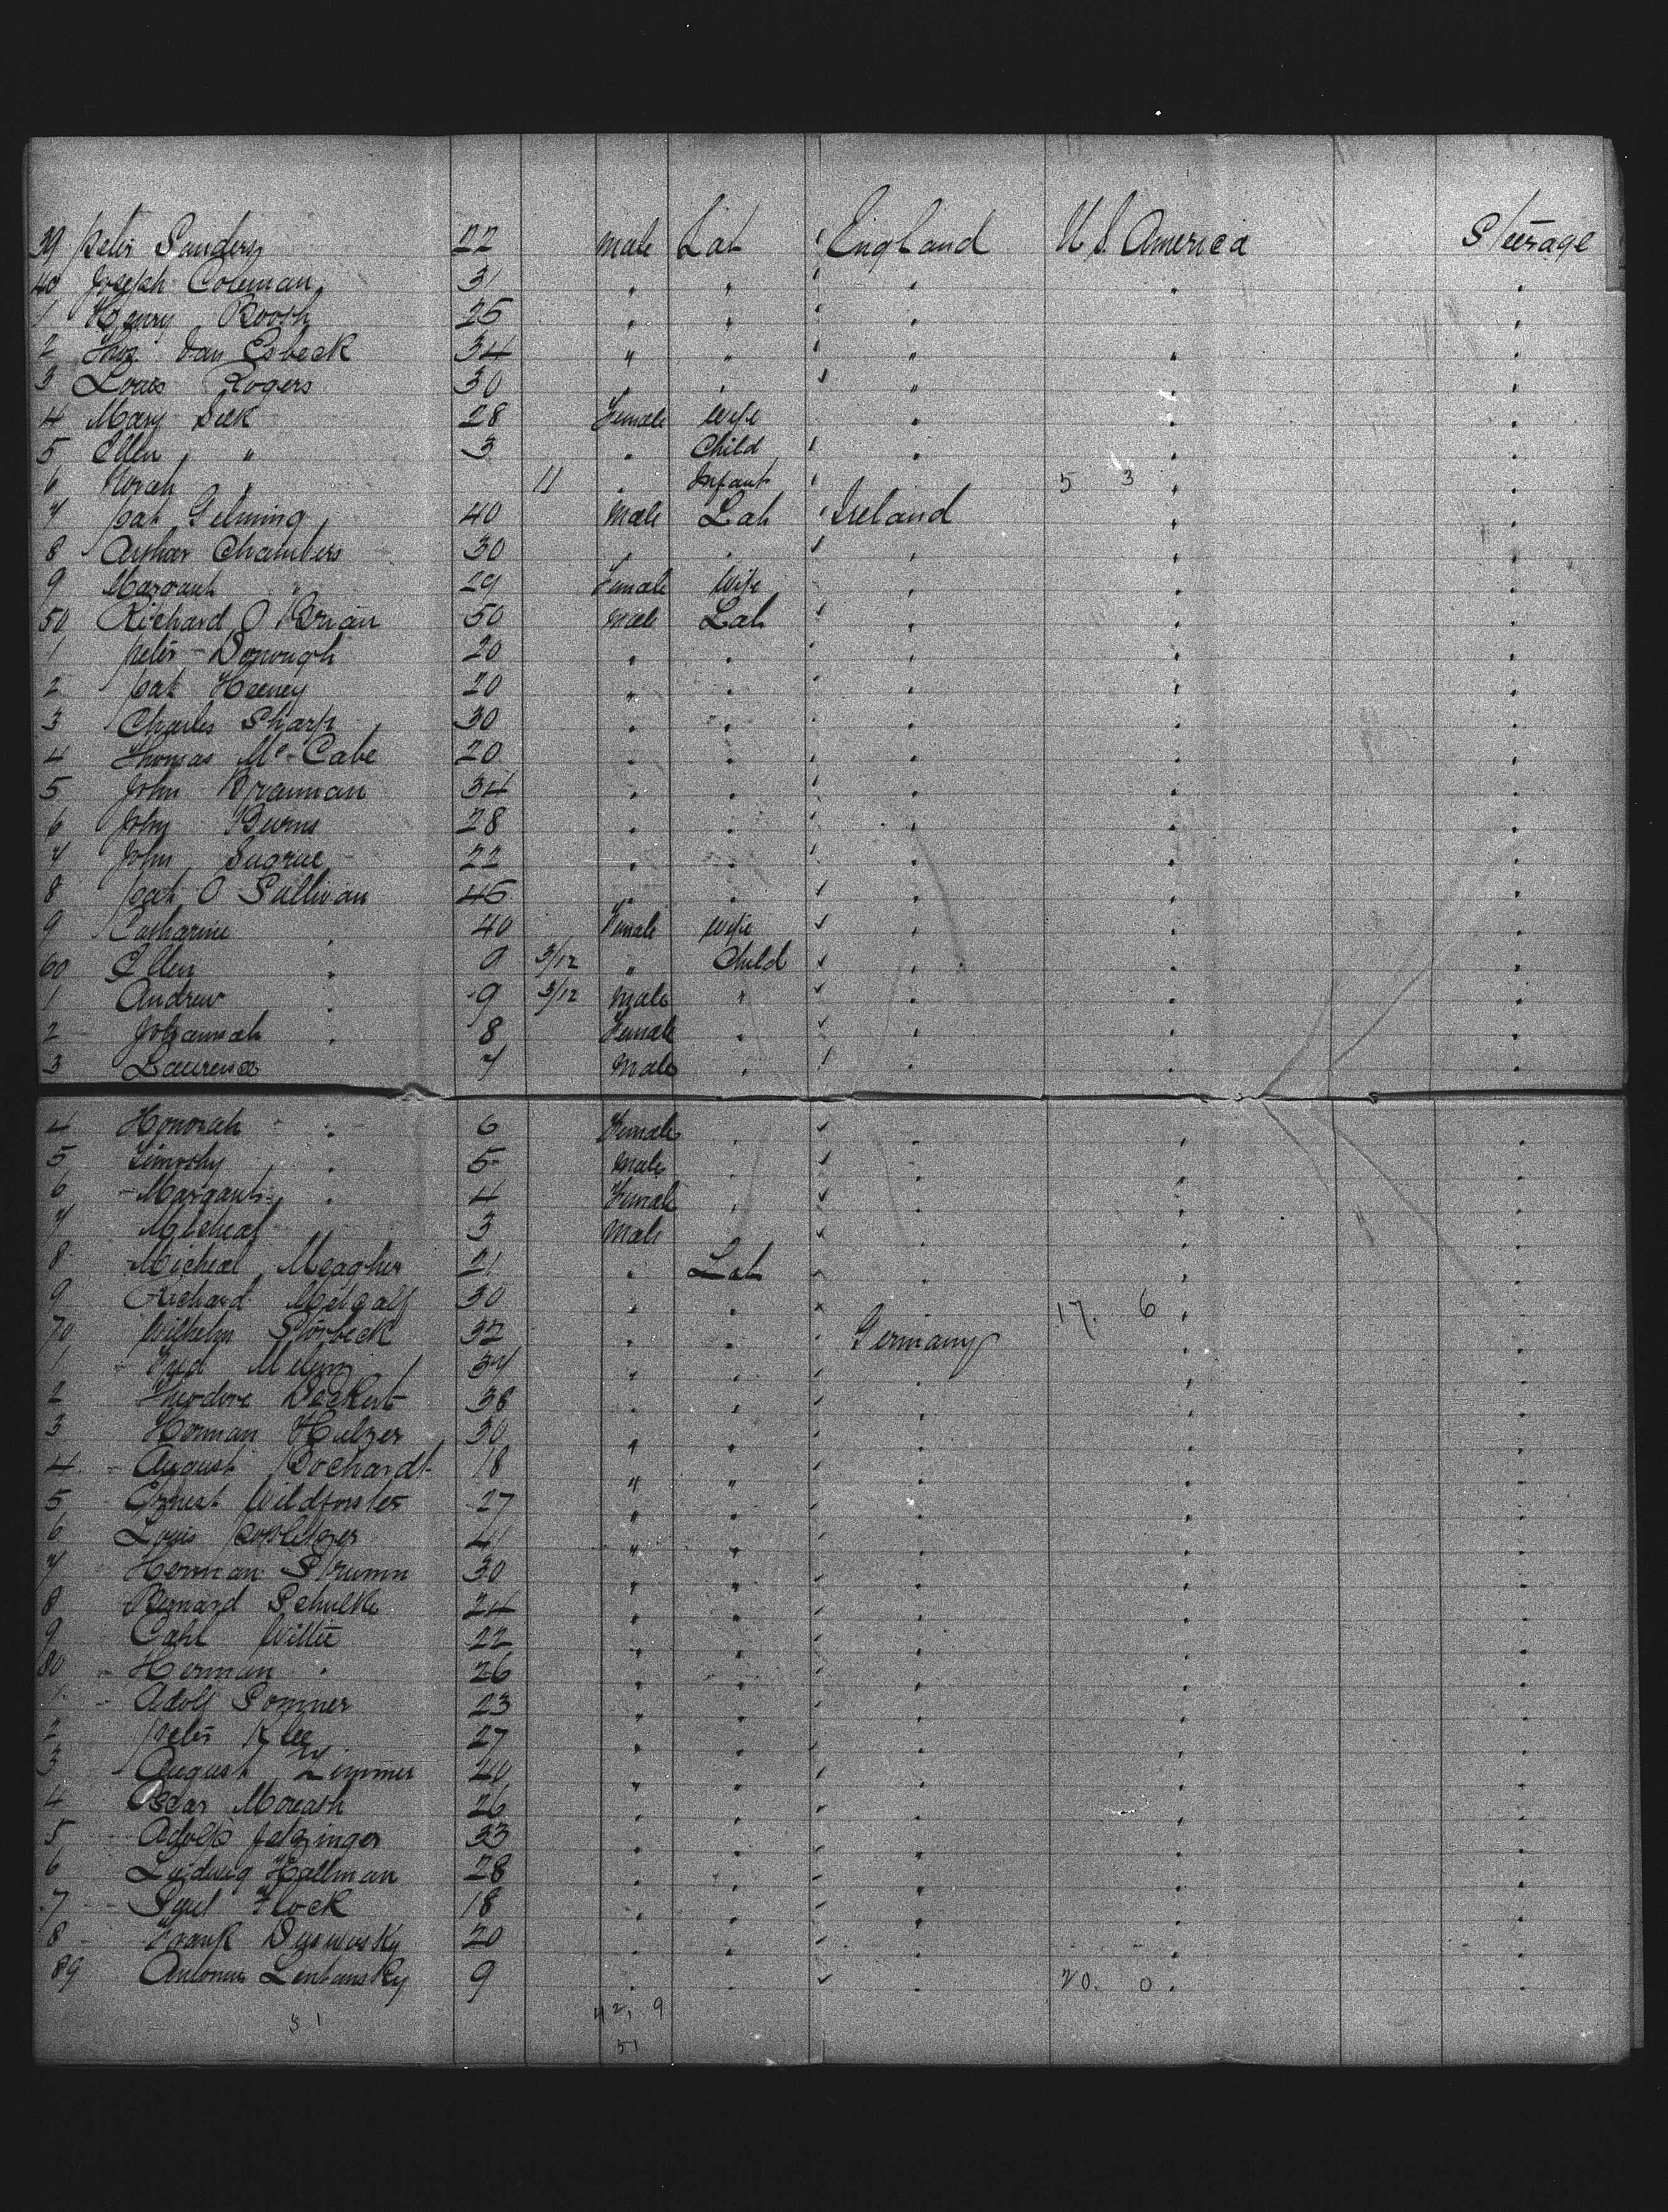 39 Peter Sanders 22 Male Lab England U.S. America Steerage
40 Joseph Coleman 31 " " " " "
1 Henry Booth 25 " " " " "
2 Thos Van Esbeck 34 " " " " "
3 Louis Rogers 30 " " " " "
4 Mary Silk 28 Female Wife " " "
5 Ellen " 3 " Child " " "
6 Norah " 11 " Infant 5 3 " "
7 Pat 40 Male Lab Ireland " "
8 Arthur Chambers 30 " " " " "
9 Margaret " 29 Female Wife " " "
50 Richard O Brian 50 Male Lab " " "
1 Peter Donough 20 " " " " "
2 Pat Heeney 20 " " " " "
3 Charles Sharp 30 " " " " "
4 Thomas Mc Cabe 20 " " " " "
5 John Brannan 34 " " " " "
6 John Burns 28 " " " " "
7 John Sugrue 22 " " " " "
8 Pat O Sullivan 45 " " " " "
9 Catharine " 40 Female Wife " " "
60 Ellen " 9 3/12 " Child " " "
1 Andrew " 9 3/12 Male " " " "
2 Johannah " 8 Female " " " "
3 Laurence 7 Male " " " "
4 Honorah " 6 Female " " " "
5 Timothy " 5 Male " " " "
6 Margaret " 4 Female " " " "
7 Micheal 3 Male " " "
8 Micheal Meagher 21 " Lab " " "
9 Richard Metcalf 30 " " " 17. 6 " "
70 Wilhelm Storbeck 32 " " Germany " "
1 Fred 37 " " " " "
2 Theodore Deckert 38 " " " " "
3 Herman Hulzer 30 " " " " "
4 August Bochardt 18 " " " " "
5 Ernest Wildforster 27 " " " " "
6 Louis 41 " " " " "
7 Herman Strumn 30 " " " " "
8 Bernard Schulke 24 " " " " "
9 Carl Witte 22 " " " " "
80 Herman " 26 " " " " "
1 Adolf Sommer 23 " " " " "
2 Peter Klee 27 " " " " "
3 August Zimmer 40 " " " " "
4 Oscar Moreash 26 " " " " "
5 Adolp Jalzinger 33 " " " " "
6 Ludwig Hallman 28 " " " " "
7 Paul Flock 18 " " " " "
8 Frank 20 " " " " "
89 Lentansky 9 " " 20. 0 " "
51 42, 9
51